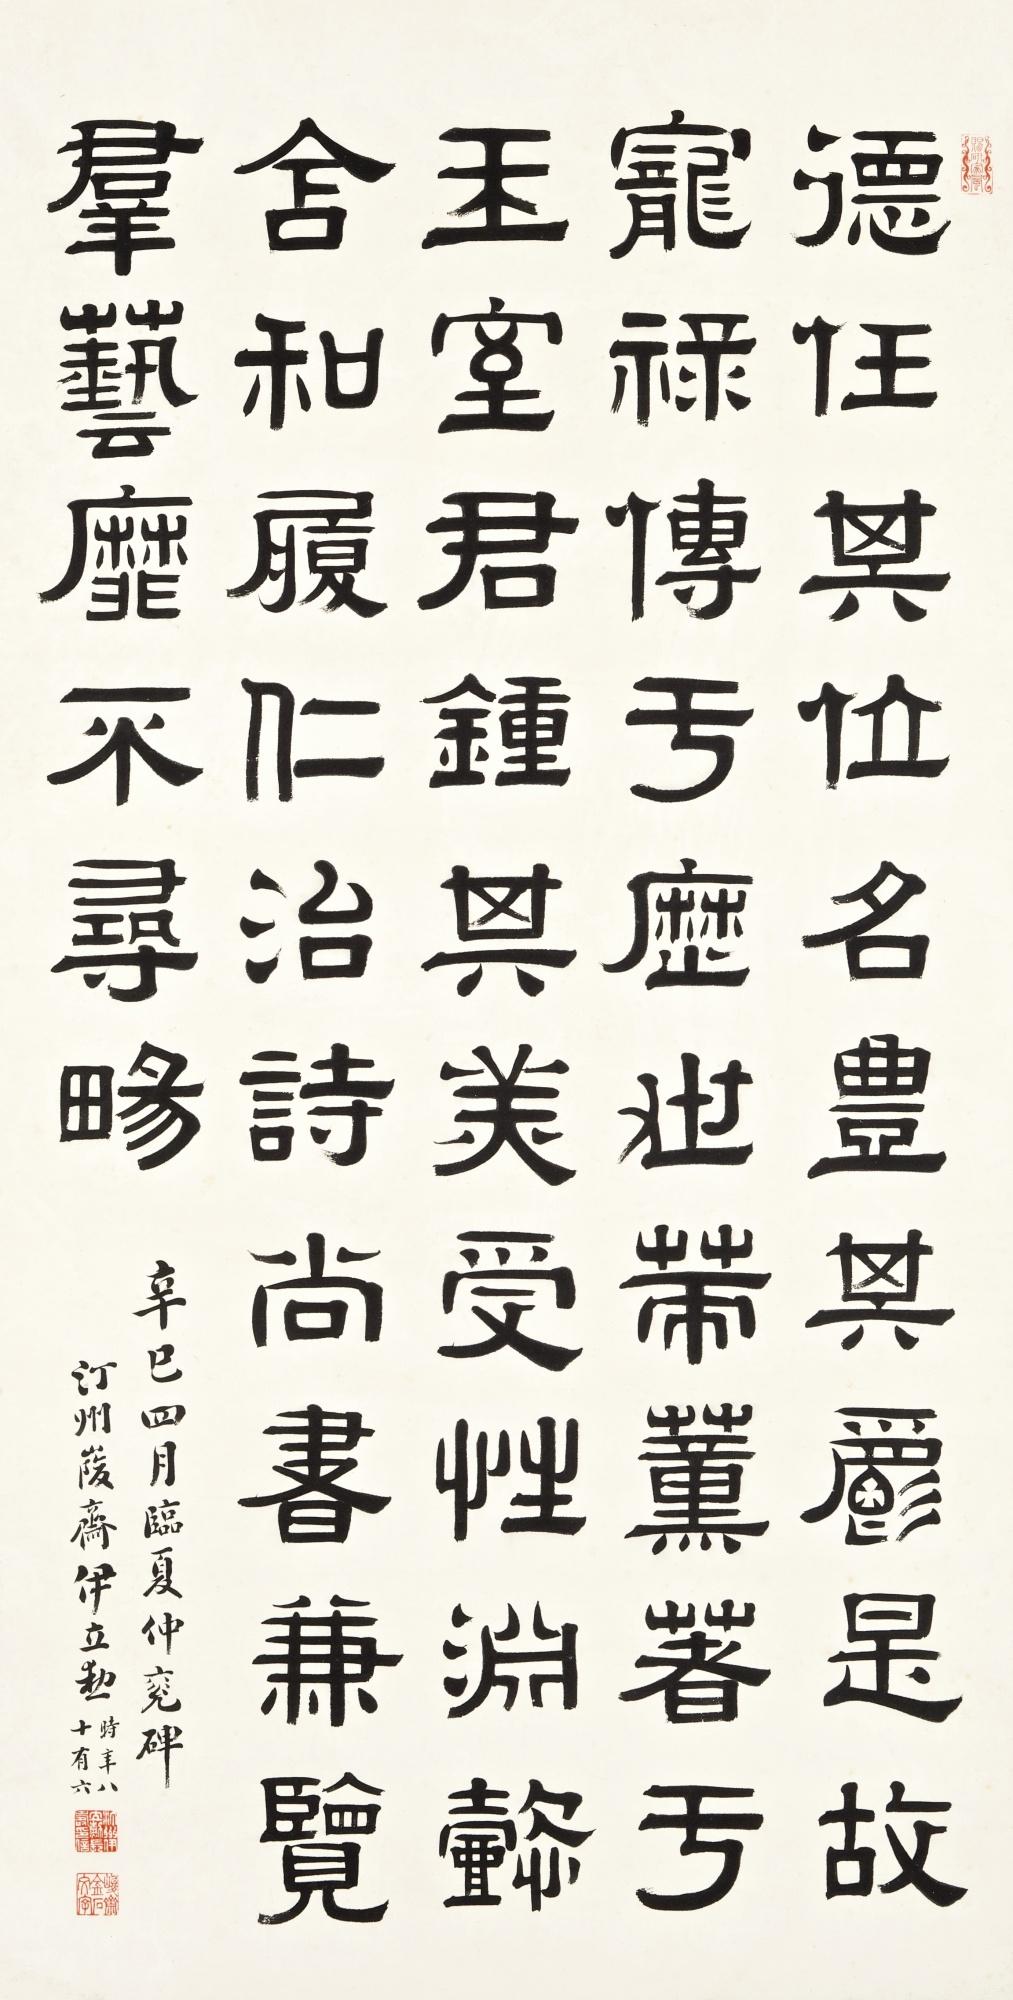 德任其位名豊其爵是故
寵祿傳亏歴世帯薰著亏
王室君鍾其美受性淵懿
含和履仁治詩尚書兼覽
羣藝靡不尋畼
辛巳四月臨夏仲兗碑
汀州峻齋伊立勲時年八十有六